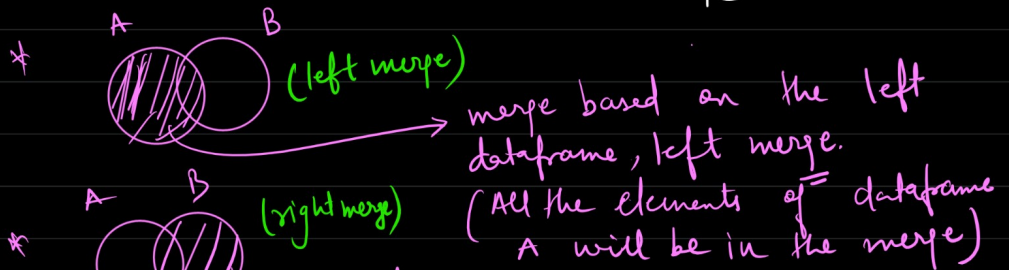 A B
* (left merge)
merge based on the left
dataframe, left merge.
(All the elements of dataframe
A will be in the merge)
A B
* (right merge)